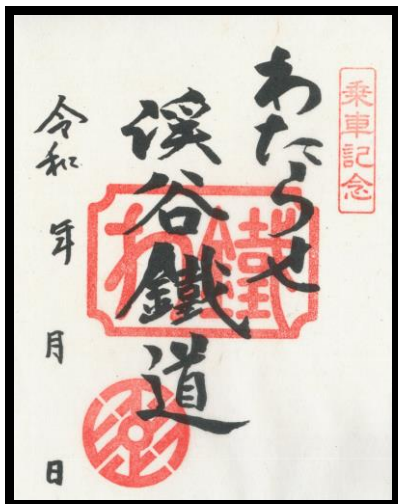 乗車記念
わたらせ
渓谷鐵道
わ鐵
令和 年 月 日